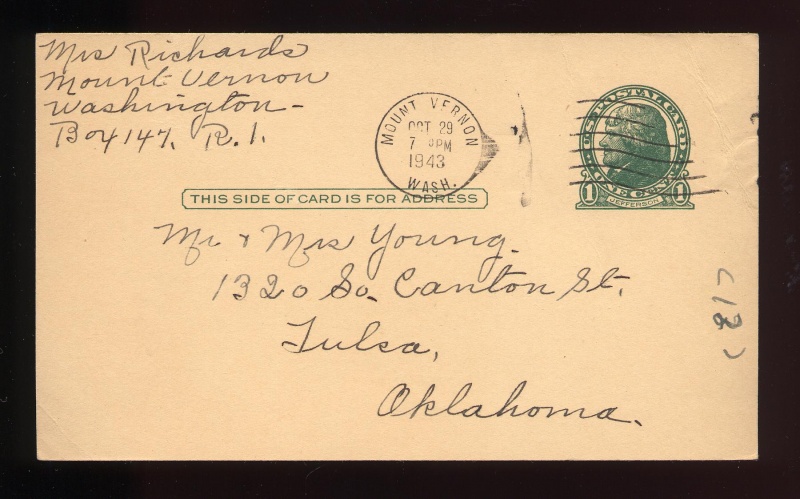 Mrs Richards
Mount Vernon
Washington-
Box 147, R.1.
MOUNT VERNON
OCT 29
7 PM
1943
WASH.
U.S. POSTAL CARD
ONE CENT
1 1
JEFFERSON
THIS SIDE OF CARD IS FOR ADDRESS
Mr & Mrs Young.
1320 So. Canton St.
Tulsa,
Oklahoma.